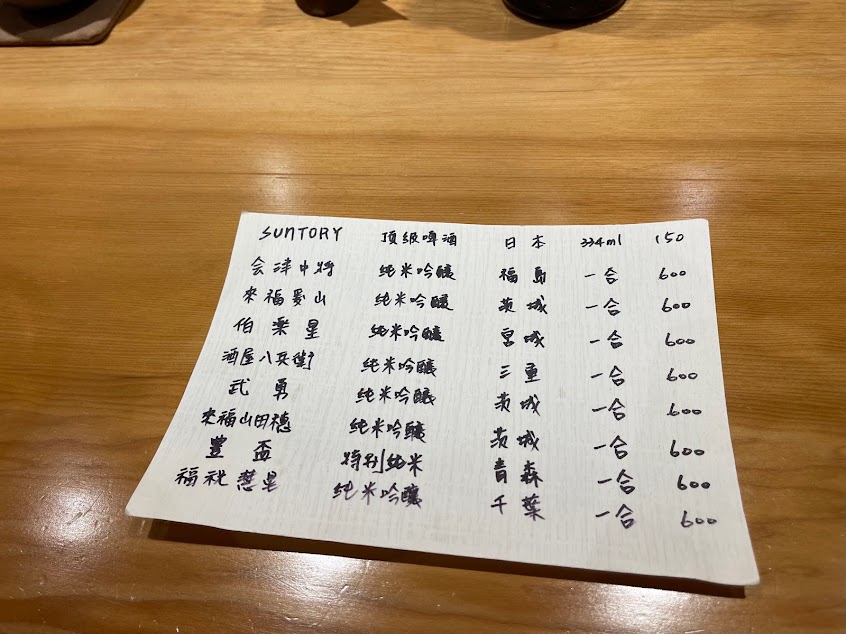 SUNTORY 頂級啤酒 日本 334ml 150
会津中将 純米吟醸 福島 一合 600
來福愛山 純米吟醸 茨城 一合 600
伯楽星 純米吟醸 宮城 一合 600
酒屋八兵衛 純米吟醸 三重 一合 600
武勇 純米吟醸 茨城 一合 600
來福山田穂 純米吟醸 茨城 一合 600
豊盃 特别純米 青森 一合 600
福祝彗星 純米吟醸 千葉 一合 600